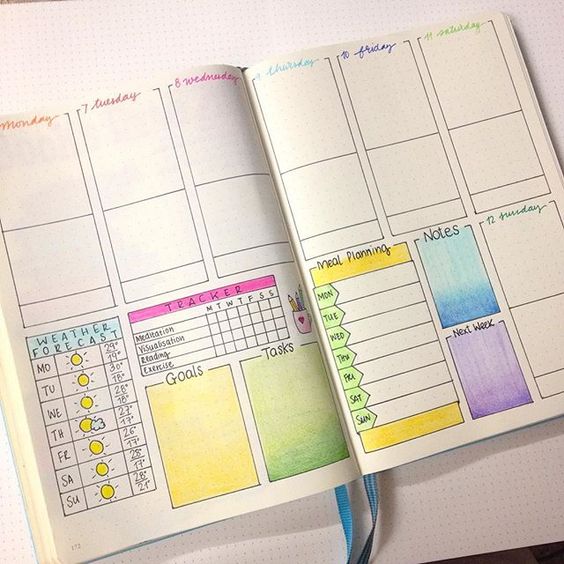 monday
7 tuesday
8 wednesday
9 thursday
10 friday
11 saturday
WEATHER
FORECAST
MO 29°
19°
TU 30°
18°
WE 28°
18°
TH 27°
17°
FR 26°
17°
SA 28°
17°
SU 28°
21°
TRACKER
M T W T F S S
Meditation
Visualisation
Reading
Exercise
Goals
Tasks
172
Meal Planning
MON
TUE
WED
THU
FRI
SAT
SUN
Notes
Next Week
12 sunday